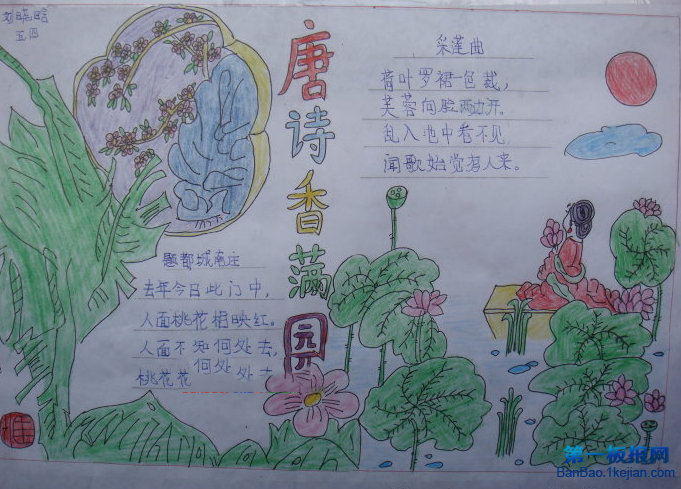 刘晓晗
五四
唐诗香满园
采莲曲
荷叶罗裙一色裁,
芙蓉向脸两边开。
乱入池中看不见
闻歌始觉有人来。
题都城南庄
去年今日此门中,
人面桃花相映红。
人面不知何处去,
何处
桃花花 处去
第一板报网
BanBao.1kejian.com